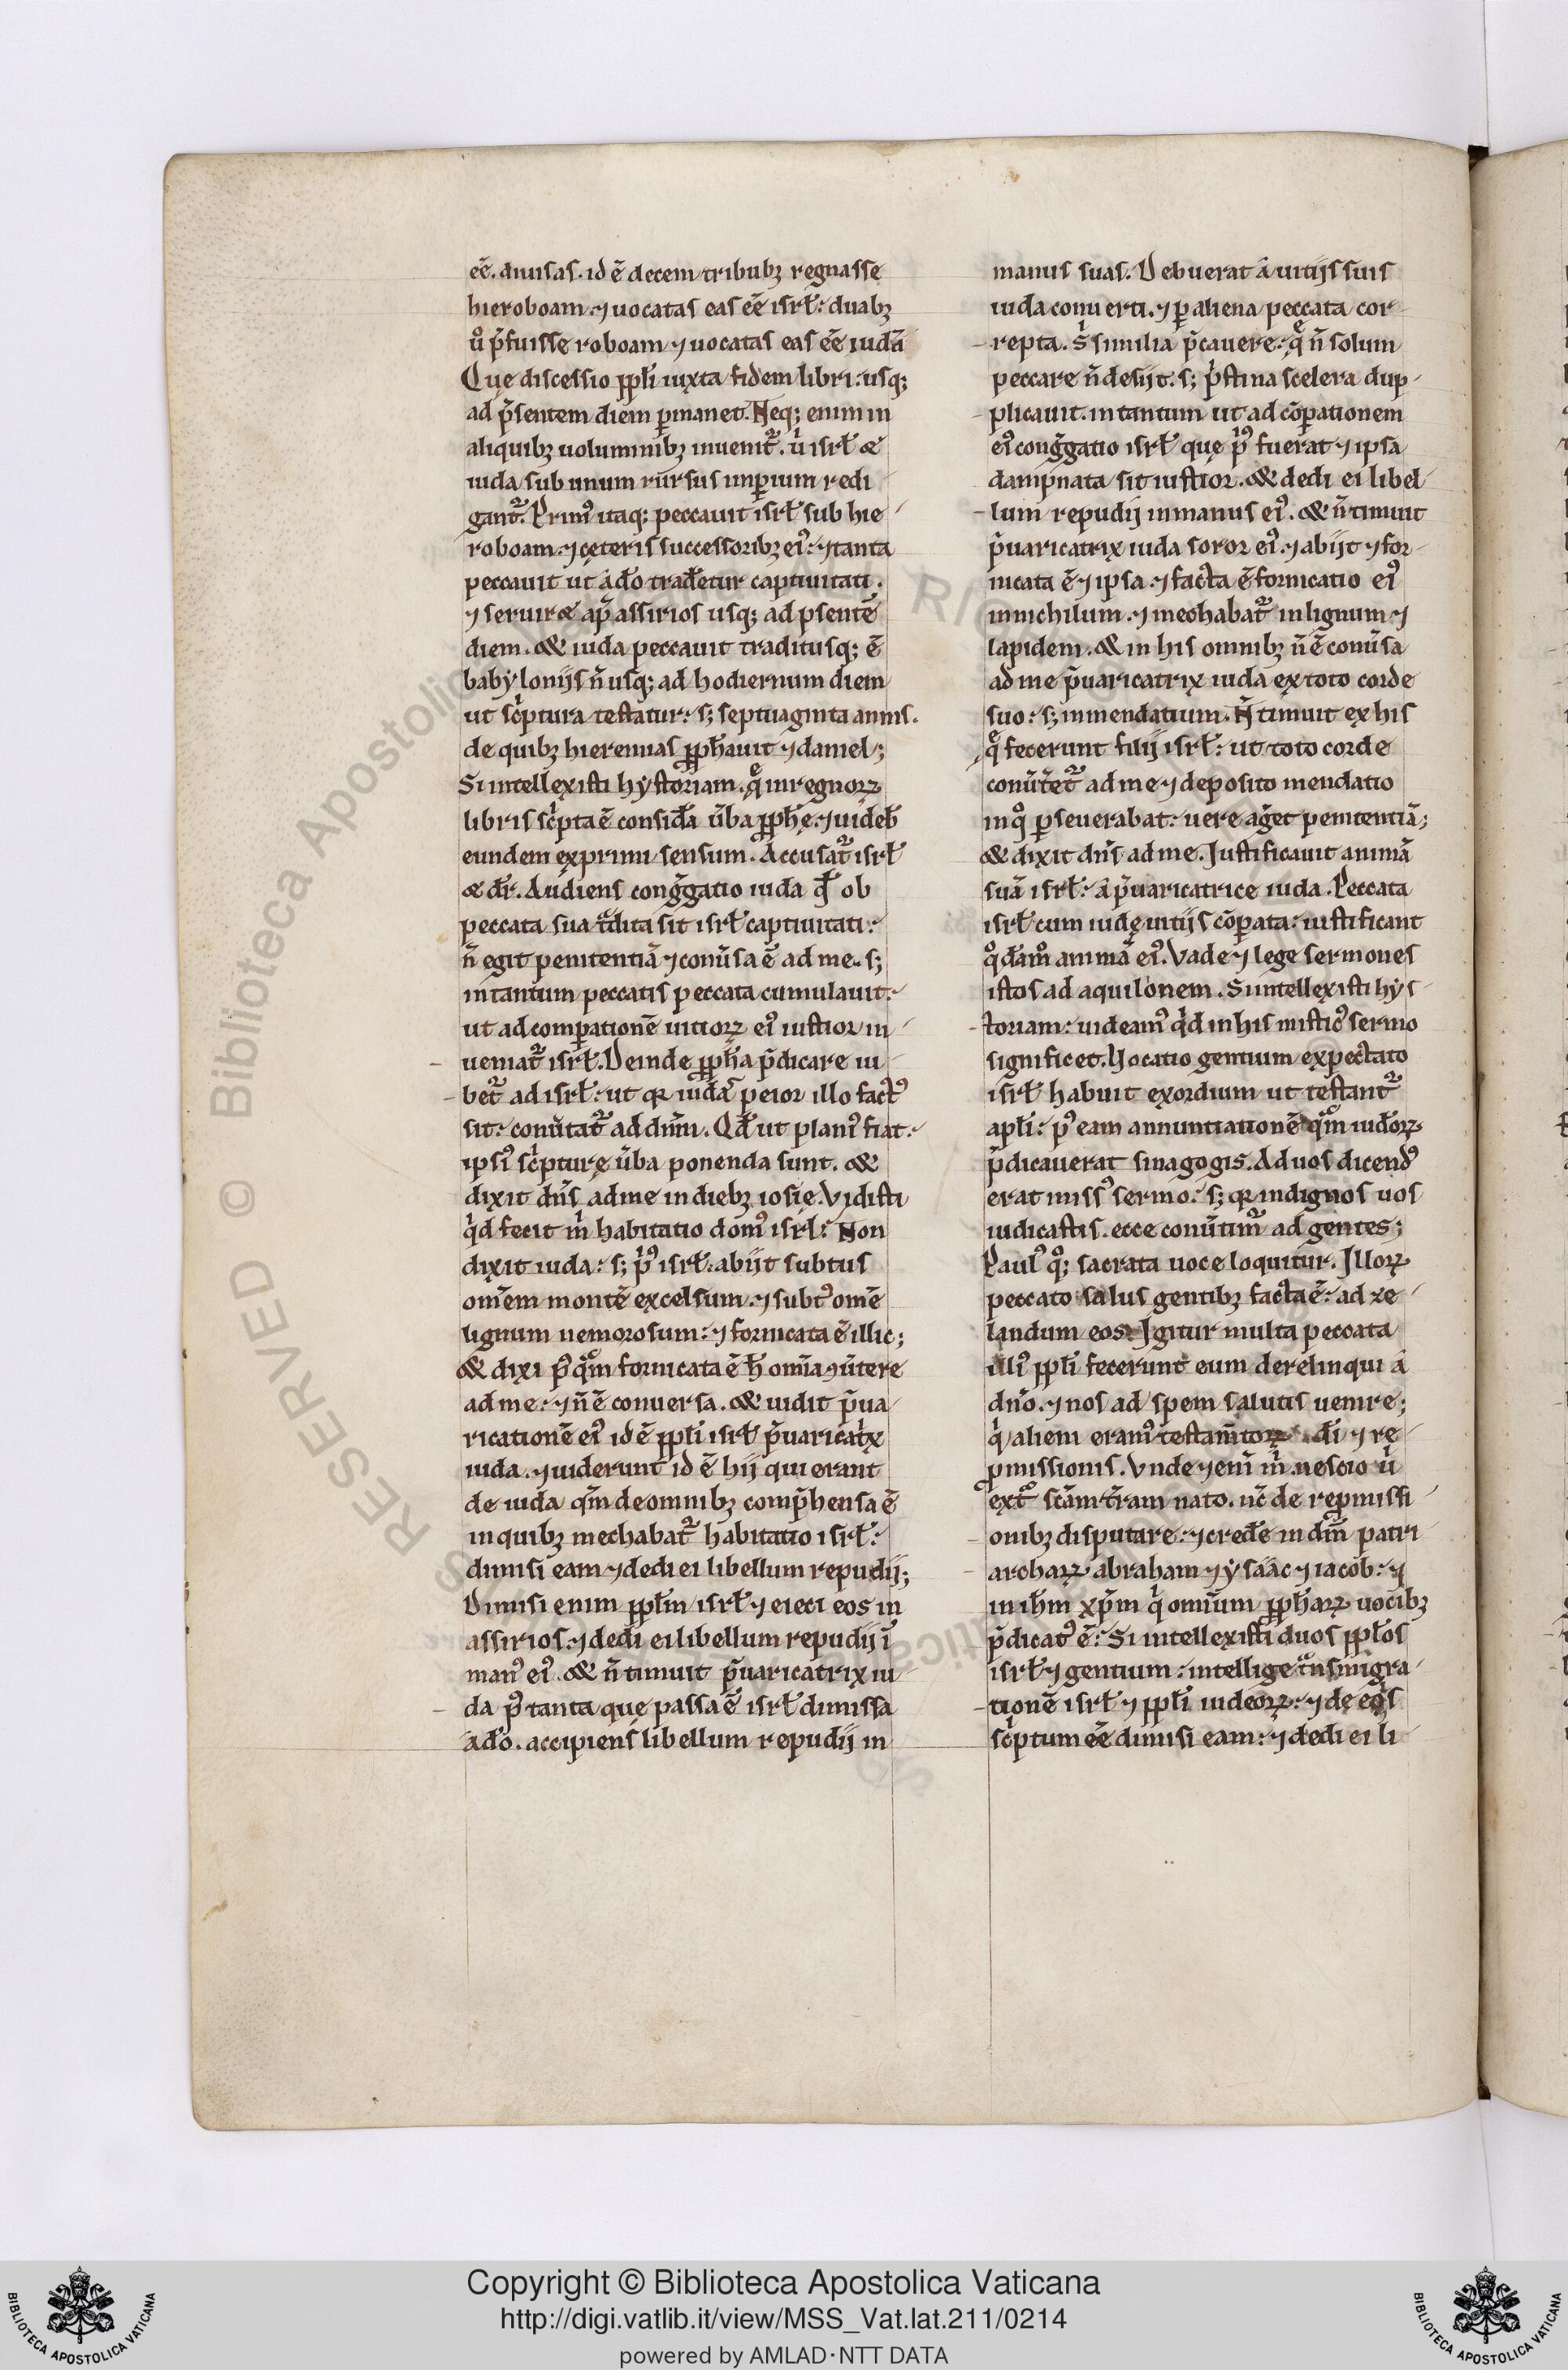 eē. diuisas. id ē decem tribubꝫ regnasse
hieroboam. ⁊ uocatas eas eē isrł: duabꝫ
ů p̄fuisse roboam ⁊ uocatas eas eē iudā
Quę discessio ppłi iuxta fidem libri: usq;
ad p̄sentem diem ꝑmanet. Neq; enim in
aliquibꝫ uoluminibꝫ inuenit᷑. ut̉ isrł &
iuda sub unum rursus imꝑium redi
gant᷑. Primꝰ itaq; peccauit isrł sub hie
roboam. ⁊ cęteris successoribꝫ eiꝰ: ⁊ tanta
peccauit ut á dō trad̄etur captiuitati.
⁊ seruir& ap̄ assirios usq; ad p̄sentē
diem. & iuda peccauit traditusq; ē
babyloniis n̄ usq; ad hodiernum diem
ut sc̉ptura testatur: s; septuaginta annis.
de quibꝫ hieremias ꝓph̄auit ⁊ daniel;
Si intellexisti hystoriam. q̄ in regnoꝝ
libris sc̉pta ē consid̄a ūba ꝓph̄ę. ⁊ uideb̄
eundem exprimi sensum. Accusat᷑ isrł
& dr̄. Audiens cong̃gatio iuda qđ ob
peccata sua t̃dita sit isrł captiuitati:
n̄ egit penitentiā ⁊ conūsa ē ad me. s;
intantum peccatis peccata cumulauit:
ut ad comꝑationē uitioꝝ eiꝰ iustior in
ueniat᷑ isrł. Deinde ꝓph̄a p̄dicare iu
bet᷑ ad isrł: ut qꝛ iuda peior illo factꝰ
sit: conūtat᷑ ad dn̄m. Qđ ut planiꝰ fiat:
ipsiꝰ sc̉pturę ūba ponenda sunt. &
dixit dn̄s ad me in diebꝫ iosię. Vidisti
q̉d fecit m̉ habitatio domꝰ isrł: Non
dixit iuda: s; p̉ꝰ isrł: abiit subtus
om̄em montē excelsum. ⁊ subtꝰ om̄ē
lignum nemorosum: ⁊ fornicata ē illic;
& dixi pꝰ qm̄ fornicata ē h̄ om̄ia ꝯūtere
ad me: ⁊ n̄ ē conuersa. & uidit p̄ua
ricationē eiꝰ id ē ppłi isrł p̄uaricat̉x
iuda. ⁊ uiderunt id ē hij qui erant
de iuda qm̄ de omnibꝫ comp̄hensa ē
in quibꝫ mechabat᷑ habitatio isrł:
dimisi eam ⁊ dedi ei libellum repudij;
Dimisi enim ppłm isrł ⁊ eieci eos in
assirios. ⁊ dedi ei libellum repudij ī
manꝰ eiꝰ. & n̄ timuit p̄uaricatrix iu
da pꝰ tanta que passa ē isrł dimissa
á dō. accipiens libellum repudij in
manus suas. Debuerat á uitijs suis
iuda conuerti. ⁊ ꝑ aliena peccata cor
repta. s̉ similia p̄cauere: q̄ n̄ solum
peccare n̄ desijt. s; p̉stina scelera dup
plicauit. intantum ut ad cōꝑationem
eiꝰ cong̃gatio isrł que p̉ꝰ fuerat ⁊ ipsa
dampnata sit iustior. & dedi ei libel
lum repudij in manus eiꝰ. & n̄ timuit
p̄uaricatrix iuda soror eiꝰ. ⁊ abijt ⁊ for
nicata ē ⁊ ipsa ⁊ facta ē fornicatio eiꝰ
in nichilum. ⁊ mechabat᷑ in lignum ⁊
lapidem. & in his omnibꝫ n̄ ē conūsa
ad me p̄uaricatrix iuda ex toto corde
suo: s; in mendatium. N̄ timuit ex his
q̄ fecerunt filij isrł: ut toto corde
conūt̃et᷑ ad me ⁊ deposito mendatio
in q° ꝑseuerabat: uere aḡet penitentiā;
& dixit dn̄s ad me. Iustificauit animā
suā isrł: á p̄uaricatrice iuda. Peccata
isrł cum iudę uitijs cōꝑata: iustificant
q°đam° animā eiꝰ. Vade ⁊ lege sermones
istos ad aquilonem. Si intellexisti hys
toriam: uideamꝰ q̉d in his misticꝰ sermo
significet. Vocatio gentium ex peccato
isrł habuit exordium ut testant᷑
apłi: pꝰ eam annuntiationē qm̄ iuđoꝝ
p̄dicauerat sinagogis. Ad uos dicendꝰ
erat missꝰ sermo: s; qꝛ indignos uos
iudicastis. ecce conūtim᷑ ad gentes;
Paulꝰ q°; sacrata uoce loquitur. Illoꝝ
peccato salus gentibꝫ facta ē: ad ze
landum eos. Igitur multa peccata
illiꝰ ppłi fecerunt eum derelinqui á
dn̄o. ⁊ nos ad spem salutis uenire;
q̉ alieni eramꝰ testam̄toꝝ di ⁊ re
ꝓmissionis. Vnde ⁊ eni m̉ nescio ū
ext° sc̄am t̄ram nato. nc̄ de repmissi
onibꝫ disputare: ⁊ cred̄e in dm̄ patri
archaꝝ abraham ⁊ ysaac ⁊ iacob: ⁊
in ih̄m xp̄m q̉ omnium ꝓph̄aꝝ uocibꝫ
p̄dicatꝰ ē: Si intellexisti duos ppłos
isrł ⁊ gentium: intellige t̃nsmigra
tionē isrł ⁊ ppłi iudeoꝝ: ⁊ de eos
sc̉ptum eē dimisi eam: ⁊ dedi ei li
Copyright © Biblioteca Apostolica Vaticana
http://digi.vatlib.it/view/MSS_Vat.lat.211/0214
powered by AMLAD·NTT DATA
BIBLIOTECA APOSTOLICA VATICANA
BIBLIOTECA APOSTOLICA VATICANA